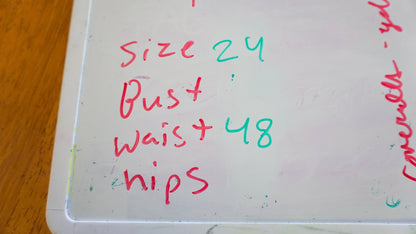 size 24
Bust
waist 48
hips
coveralls - yel